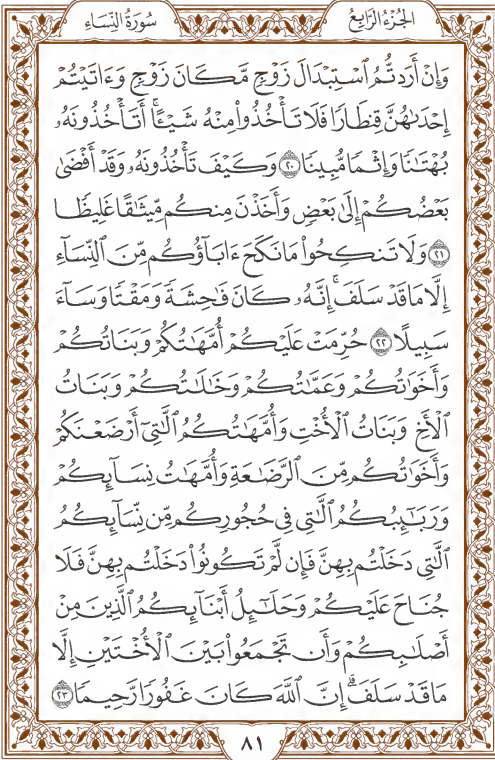 الجُزْءُ الرَّابِعُ
سُورَةُ النِّسَاءِ
وَإِنْ أَرَدتُّمُ ٱسْتِبْدَالَ زَوْجٍ مَّكَانَ زَوْجٍ وَءَاتَيْتُمْ
إِحْدَىٰهُنَّ قِنطَارًا فَلَا تَأْخُذُوا۟ مِنْهُ شَيْـًٔا ۚ أَتَأْخُذُونَهُۥ
بُهْتَـٰنًا وَإِثْمًا مُّبِينًا ٢٠ وَكَيْفَ تَأْخُذُونَهُۥ وَقَدْ أَفْضَىٰ
بَعْضُكُمْ إِلَىٰ بَعْضٍ وَأَخَذْنَ مِنكُم مِّيثَـٰقًا غَلِيظًا
٢١ وَلَا تَنكِحُوا۟ مَا نَكَحَ ءَابَآؤُكُم مِّنَ ٱلنِّسَآءِ
إِلَّا مَا قَدْ سَلَفَ ۚ إِنَّهُۥ كَانَ فَـٰحِشَةً وَمَقْتًا وَسَآءَ
سَبِيلًا ٢٢ حُرِّمَتْ عَلَيْكُمْ أُمَّهَـٰتُكُمْ وَبَنَاتُكُمْ
وَأَخَوَٰتُكُمْ وَعَمَّـٰتُكُمْ وَخَـٰلَـٰتُكُمْ وَبَنَاتُ
ٱلْأَخِ وَبَنَاتُ ٱلْأُخْتِ وَأُمَّهَـٰتُكُمُ ٱلَّـٰتِىٓ أَرْضَعْنَكُمْ
وَأَخَوَٰتُكُم مِّنَ ٱلرَّضَـٰعَةِ وَأُمَّهَـٰتُ نِسَآئِكُمْ
وَرَبَـٰٓئِبُكُمُ ٱلَّـٰتِى فِى حُجُورِكُم مِّن نِّسَآئِكُمُ
ٱلَّـٰتِى دَخَلْتُم بِهِنَّ فَإِن لَّمْ تَكُونُوا۟ دَخَلْتُم بِهِنَّ فَلَا
جُنَاحَ عَلَيْكُمْ وَحَلَـٰٓئِلُ أَبْنَآئِكُمُ ٱلَّذِينَ مِنْ
أَصْلَـٰبِكُمْ وَأَن تَجْمَعُوا۟ بَيْنَ ٱلْأُخْتَيْنِ إِلَّا
مَا قَدْ سَلَفَ ۗ إِنَّ ٱللَّهَ كَانَ غَفُورًا رَّحِيمًا ٢٣
٨١